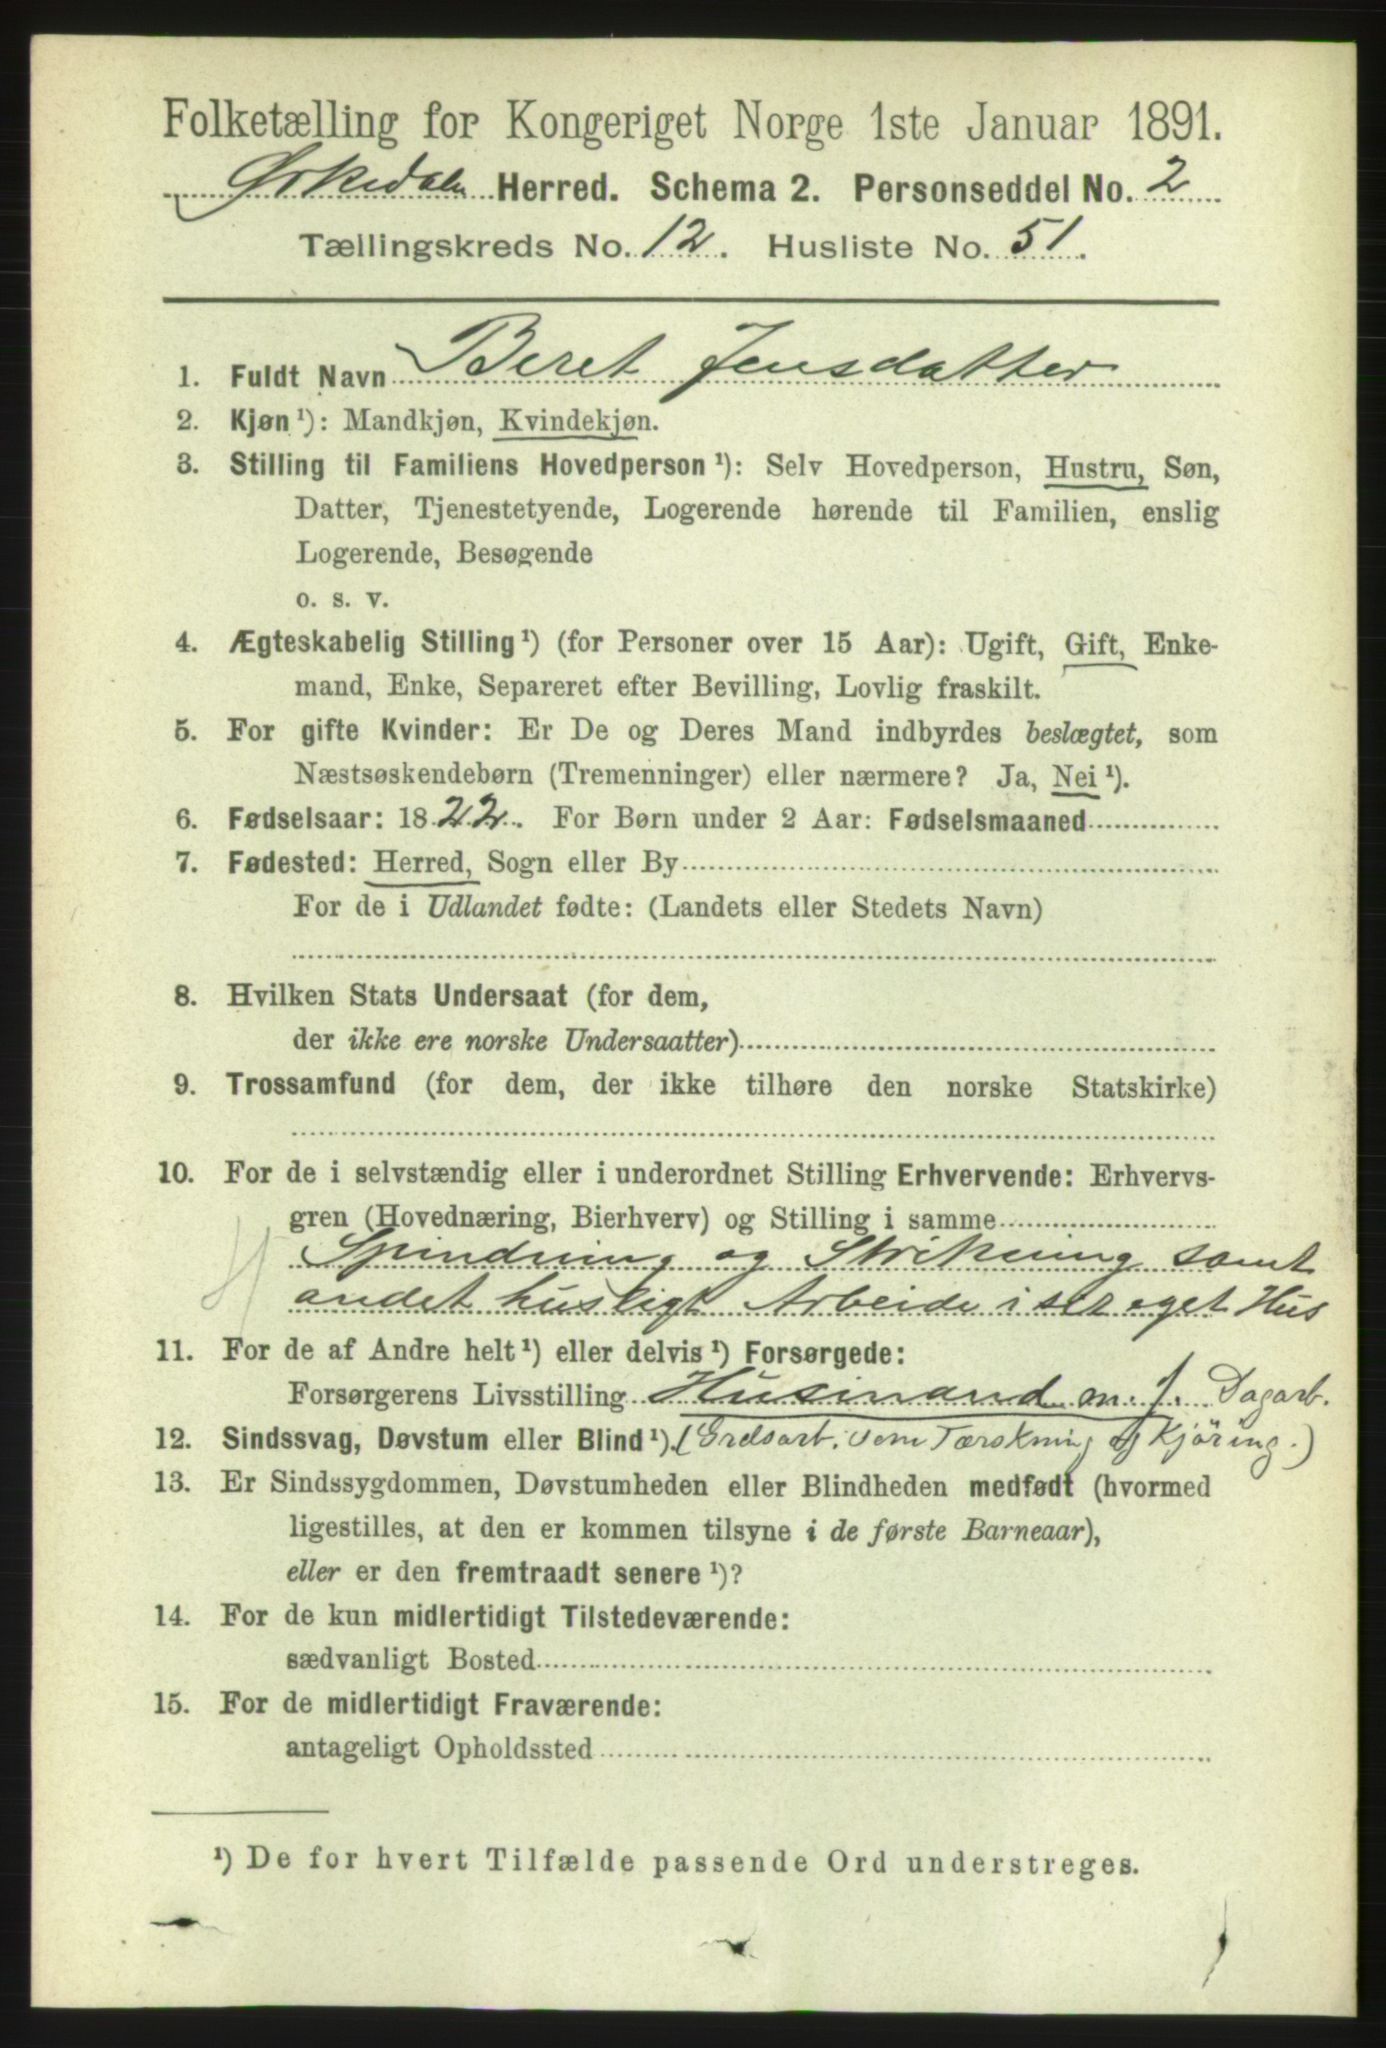 Folketælling for Kongeriget Norge 1ste Januar 1891.
Ørkedalen Herred. Schema 2. Personseddel No. 2
Tællingskreds No. 12. Husliste No. 51.
1. Fuldt Navn Beret Jensdatter
2. Kjøn ¹): Mandkjøn, Kvindekjøn.
3. Stilling til Familiens Hovedperson ¹): Selv Hovedperson, Hustru, Søn,
Datter, Tjenestetyende, Logerende hørende til Familien, enslig
Logerende, Besøgende
o. s. v.
4. Ægteskabelig Stilling ¹) (for Personer over 15 Aar): Ugift, Gift, Enke-
mand, Enke, Separeret efter Bevilling, Lovlig fraskilt.
5. For gifte Kvinder: Er De og Deres Mand indbyrdes beslægtet, som
Næstsøskendebørn (Tremenninger) eller nærmere? Ja, Nei ¹).
6. Fødselsaar: 1822. For Børn under 2 Aar: Fødselsmaaned
7. Fødested: Herred, Sogn eller By
For de i Udlandet fødte: (Landets eller Stedets Navn)
8. Hvilken Stats Undersaat (for dem,
der ikke ere norske Undersaatter)
9. Trossamfund (for dem, der ikke tilhøre den norske Statskirke)
10. For de i selvstændig eller i underordnet Stilling Erhvervende: Erhvervs-
gren (Hovednæring, Bierhverv) og Stilling i samme
Spindning og Strikning samt
andet husligt Arbeide i sit eget Hus
11. For de af Andre helt ¹) eller delvis ¹) Forsørgede:
Forsørgerens Livsstilling Husmand m. J. Dagarb.
12. Sindssvag, Døvstum eller Blind ¹). (Grdsarb. som Tærskning og Kjöring.)
13. Er Sindssygdommen, Døvstumheden eller Blindheden medfødt (hvormed
ligestilles, at den er kommen tilsyne i de første Barneaar),
eller er den fremtraadt senere ¹)?
14. For de kun midlertidigt Tilstedeværende:
sædvanligt Bosted
15. For de midlertidigt Fraværende:
antageligt Opholdssted
¹) De for hvert Tilfælde passende Ord understreges.